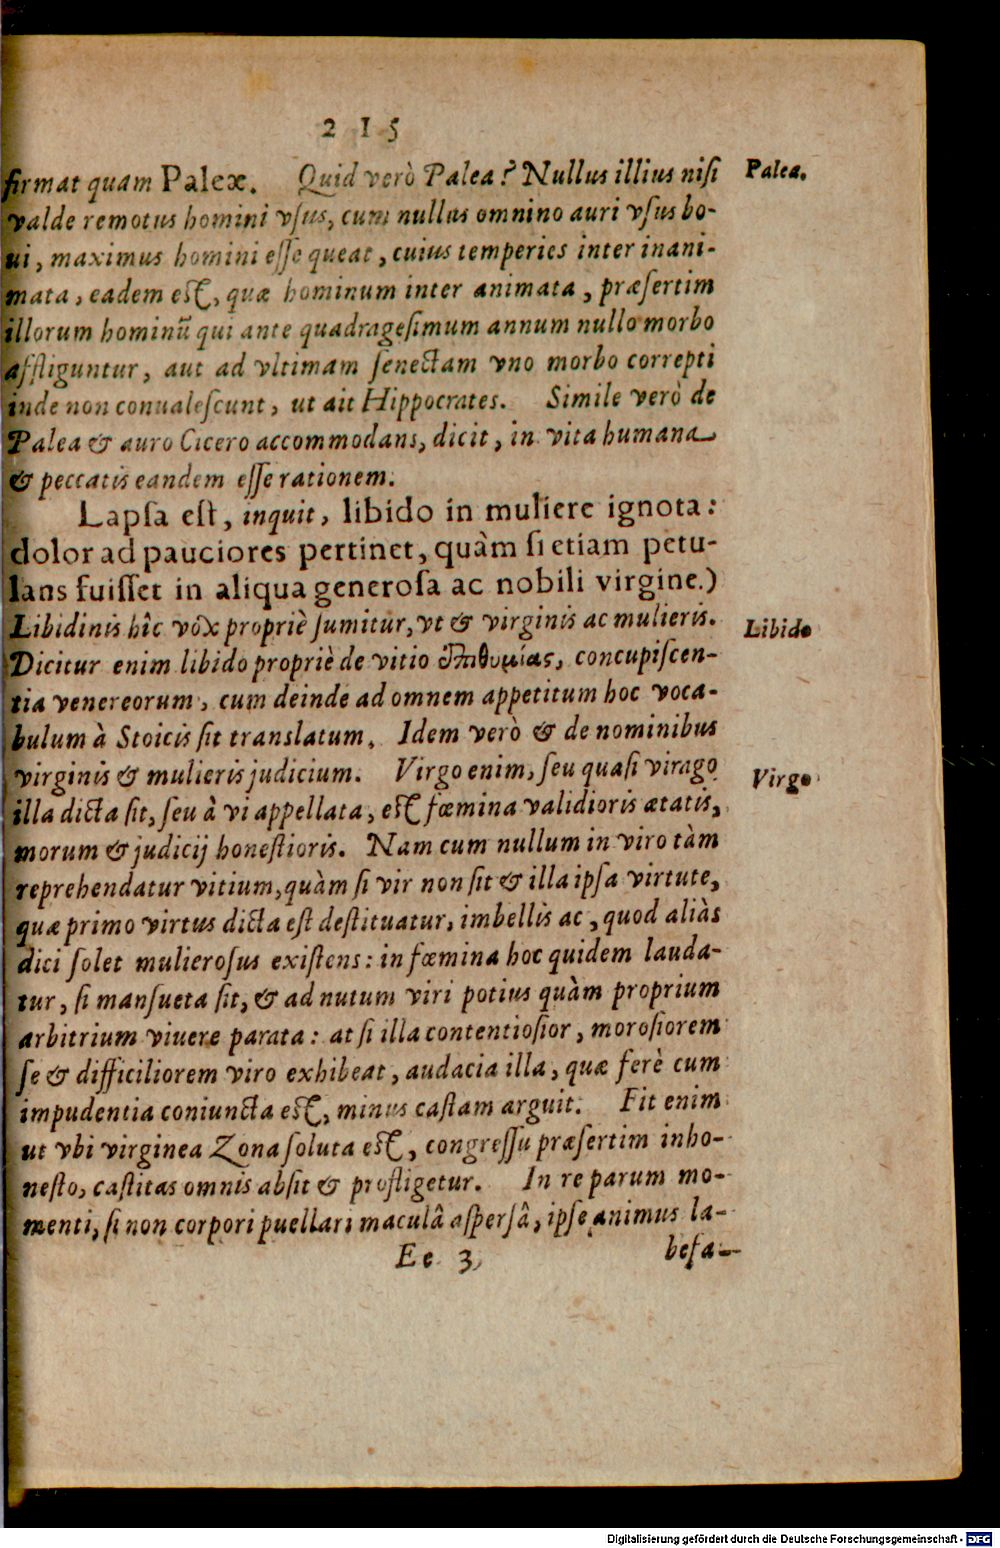 2 1 5
firmat quam Paleæ. Quid verò Palea? Nullus illius nisi
Palea.
valde remotus homini vsus, cum nullus omnino auri vsus bo-
ui, maximus homini esse queat, cuius temperies inter inani-
mata, eadem est, quæ hominum inter animata, præsertim
illorum hominũ qui ante quadragesimum annum nullo morbo
affliguntur, aut ad vltimam senectam vno morbo correpti
inde non conualescunt, ut ait Hippocrates. Simile verò de
Palea & auro Cicero accommodans, dicit, in vita humana
& peccatis eandem esse rationem.
Lapsa est, inquit, libido in muliere ignota:
dolor ad pauciores pertinet, quàm si etiam petu-
lans fuisset in aliqua generosa ac nobili virgine.)
Libidinis hîc vôx propriè sumitur, vt & virginis ac mulieris.
Libido
Dicitur enim libido propriè de vitio ἐπιθυμίας, concupiscen-
tia venereorum, cum deinde ad omnem appetitum hoc voca-
bulum à Stoicis sit translatum. Idem verò & de nominibus
virginis & mulieris judicium. Virgo enim, seu quasi virago
Virgo
illa dicta sit, seu à vi appellata, est fœmina validioris ætatis,
morum & judicij honestioris. Nam cum nullum in viro tàm
reprehendatur vitium, quàm si vir non sit & illa ipsa virtute,
quæ primo virtus dicta est destituatur, imbellis ac, quod aliàs
dici solet mulierosus existens: in fœmina hoc quidem lauda-
tur, si mansueta sit, & ad nutum viri potius quàm proprium
arbitrium viuere parata: at si illa contentiosior, morosiorem
se & difficiliorem viro exhibeat, audacia illa, quæ ferè cum
impudentia coniuncta est, minus castam arguit. Fit enim
ut vbi virginea Zona soluta est, congressu præsertim inho-
nesto, castitas omnis absit & profligetur. In re parum mo-
menti, si non corpori puellari maculâ aspersâ, ipse animus la-
Ee 3
befa-
Digitalisierung gefördert durch die Deutsche Forschungsgemeinschaft - DFG